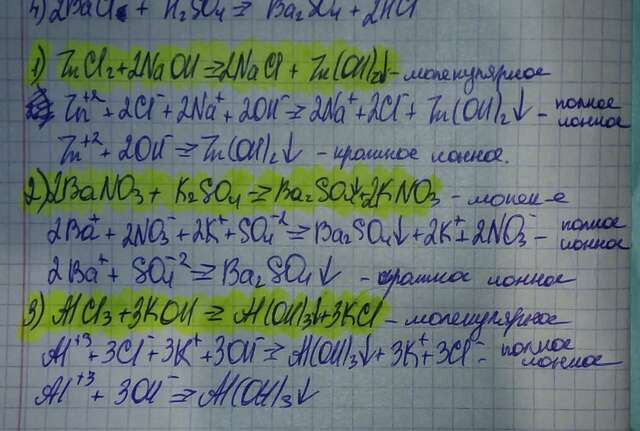 4) 2BaCl + H₂SO₄ ⇒ Ba₂SO₄ + 2HCl
1) ZnCl₂ + 2NaOH ⇒ 2NaCl + Zn(OH)₂↓ - молекулярное
Zn⁺² + 2Cl⁻ + 2Na⁺ + 2OH⁻ ⇒ 2Na⁺ + 2Cl⁻ + Zn(OH)₂↓ - полное ионное
Zn⁺² + 2OH⁻ ⇒ Zn(OH)₂↓ - краткое ионное.
2) 2BaNO₃ + K₂SO₄ ⇒ Ba₂SO₄↓ + 2KNO₃ - молек-е
2Ba⁺ + 2NO₃⁻ + 2K⁺ + SO₄⁻² ⇒ Ba₂SO₄↓ + 2K⁺ + 2NO₃⁻ - полное ионное
2Ba⁺ + SO₄⁻² ⇒ Ba₂SO₄↓ - краткое ионное
3) AlCl₃ + 3KOH ⇒ Al(OH)₃↓ + 3KCl - молекулярное
Al⁺³ + 3Cl⁻ + 3K⁺ + 3OH⁻ ⇒ Al(OH)₃↓ + 3K⁺ + 3Cl⁻ - полное ионное
Al⁺³ + 3OH⁻ ⇒ Al(OH)₃↓